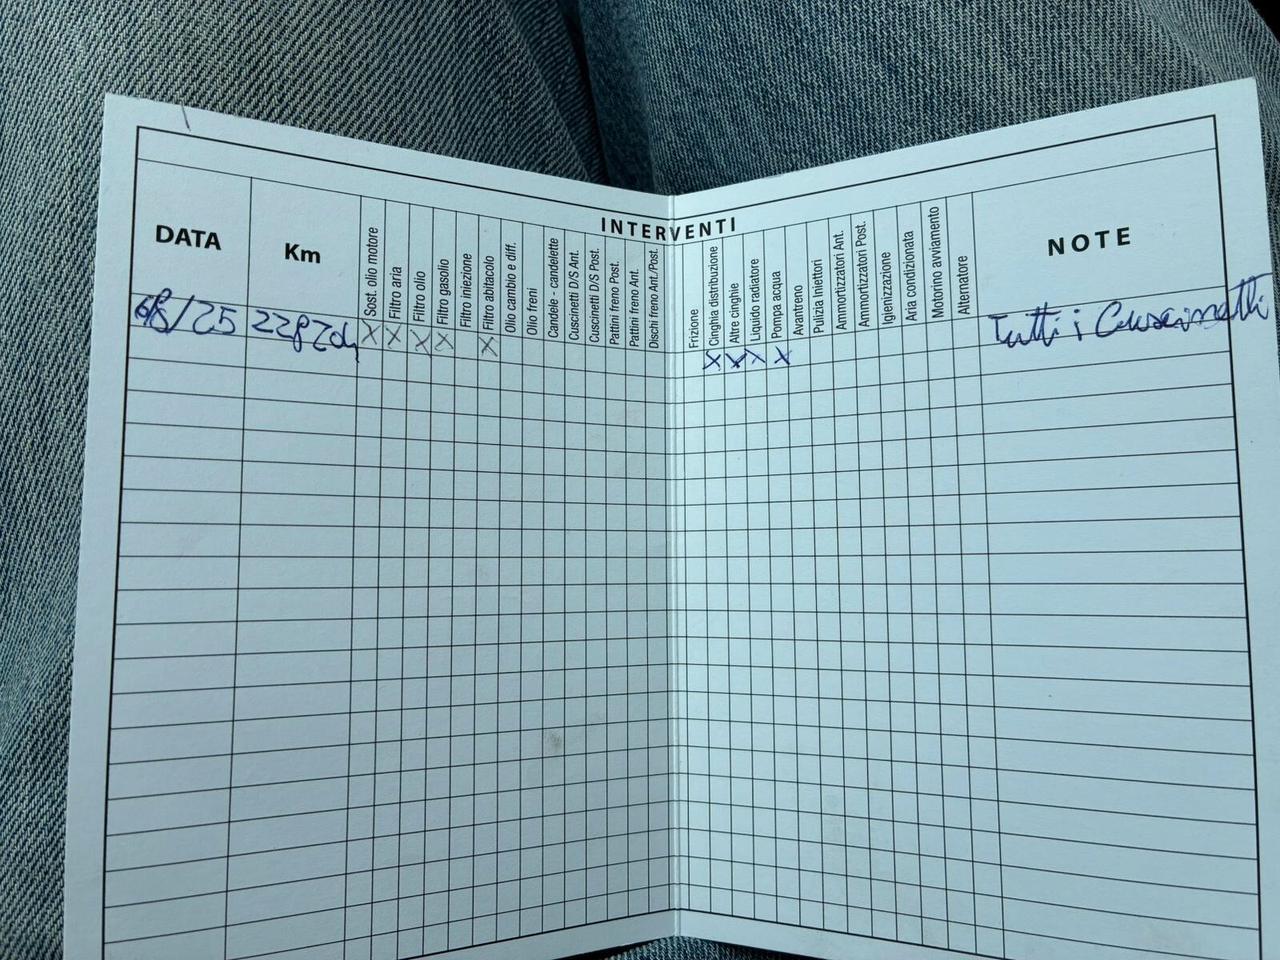 INTERVENTI
DATA
Km
Sost. olio motore
Filtro aria
Filtro olio
Filtro gasolio
Filtro iniezione
Filtro abitacolo
Olio cambio e diff.
Olio freni
Candele - candelette
Cuscinetti D/S Ant.
Cuscinetti D/S Post.
Pattini freno Post.
Pattini freno Ant.
Dischi freno Ant./Post.
Frizione
Cinghia distribuzione
Altre cinghie
Liquido radiatore
Pompa acqua
Avantreno
Pulizia Iniettori
Ammortizzatori Ant.
Ammortizzatori Post.
Igienizzazione
Aria condizionata
Motorino avviamento
Alternatore
NOTE
X X X X X X X X X Tutti i Cuscinetti